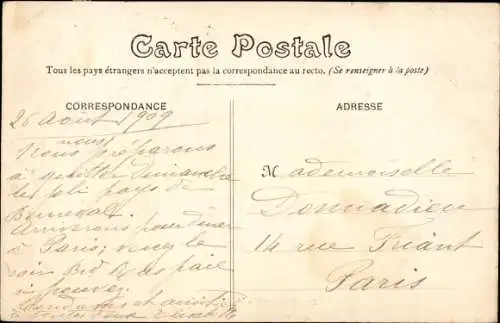 Carte Postale
Tous les pays étrangers n'acceptent pas la correspondance au recto, (Se renseigner à la poste)
CORRESPONDANCE
ADRESSE
26 Aout 1909
nous
Nous préparons
à quitter Dimanche
les joli pays de
Berneval.
Arriverons pour diner
à Paris; venez le
soir
si pouvez.
et amitiés
Mademoiselle
Donnadieu
14 rue Friant
Paris